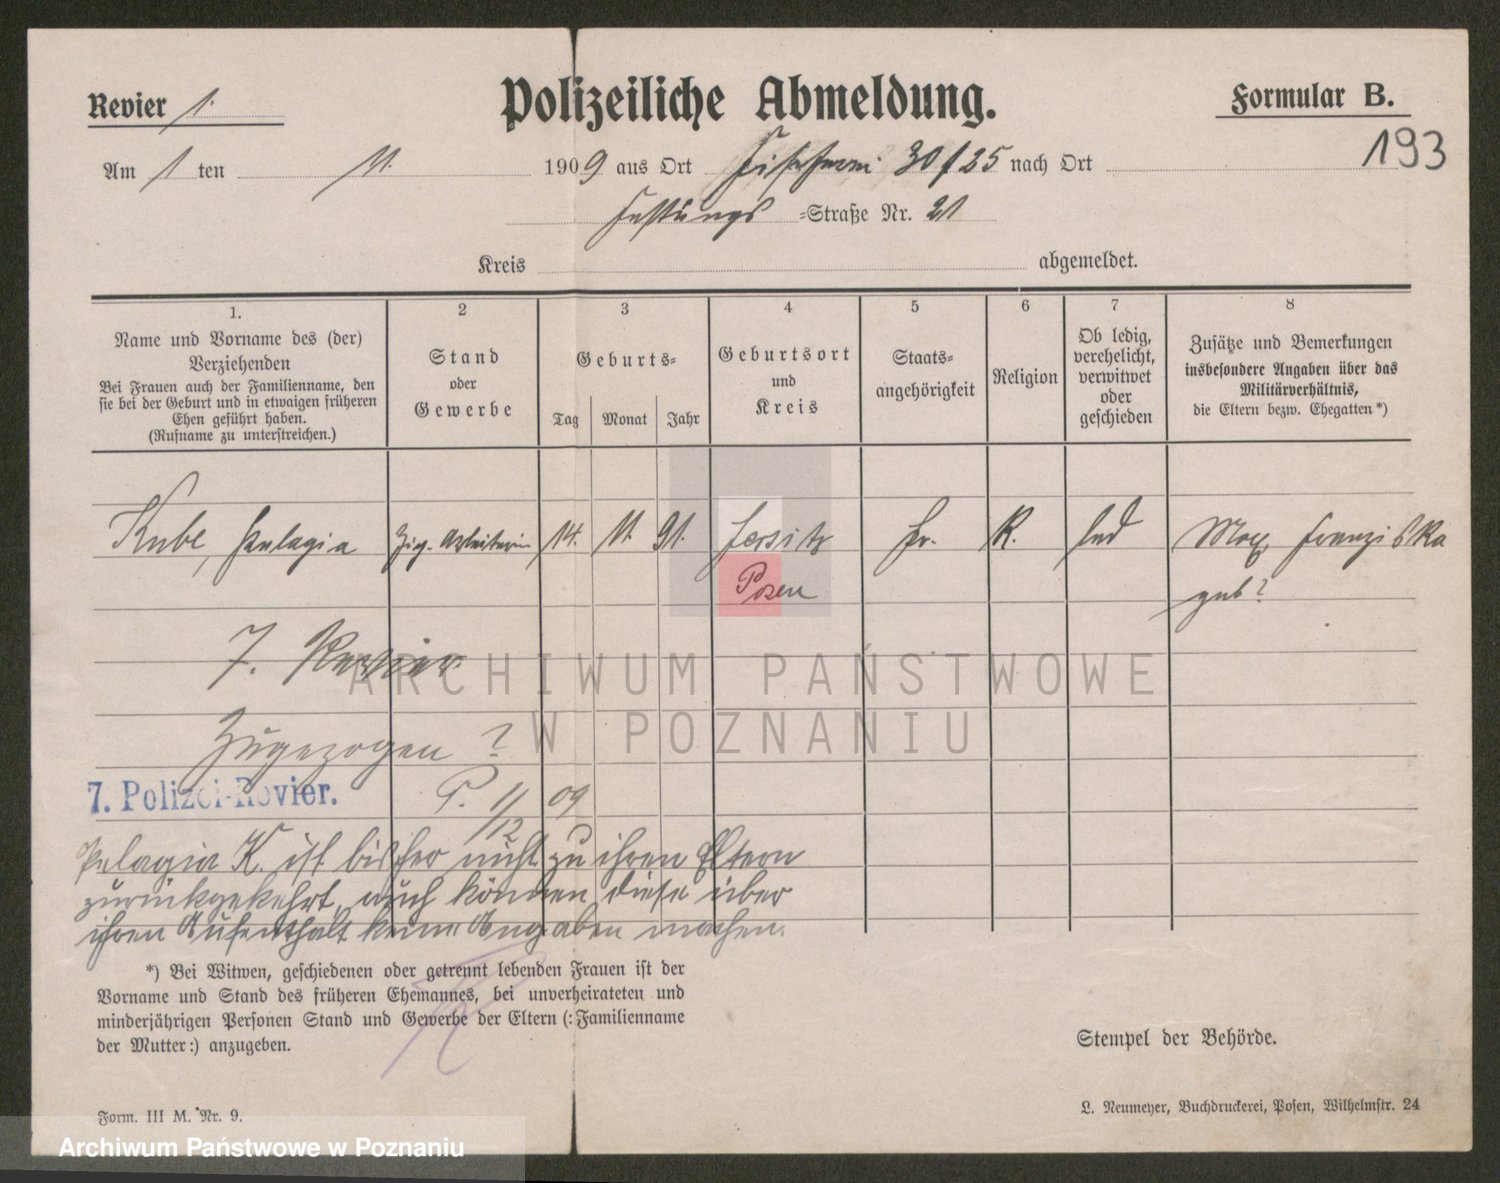 Revier 1.
Polizeiliche Abmeldung.
Formular B.
193
Am 1 ten 11. 1909 aus Ort Fischerei 30/25 nach Ort
Festungs -Straße Nr. 21
Kreis abgemeldet.
1. 2 3 4 5 6 7 8
Name und Vorname des (der)
Verziehenden
Bei Frauen auch der Familienname, den
sie bei der Geburt und in etwaigen früheren
Ehen geführt haben.
(Rufname zu unterstreichen.)
Stand
oder
Gewerbe
Geburts-
Tag Monat Jahr
Geburtsort
und
Kreis
Staats-
angehörigkeit
Religion
Ob ledig,
verehelicht,
verwitwet
oder
geschieden
Zusätze und Bemerkungen
insbesondere Angaben über das
Militärverhältnis,
die Eltern bezw. Ehegatten*)
Kube, Pelagia Zig. Arbeiterin 14. 11. 91. Jersitz Pr. K. led Max Franziska
Posen geb?
7. Revier
Zugezogen ?
7. Polizei-Revier.
P. 1/12 09
Pelagia K. ist bisher nicht zu ihren Eltern
zurückgekehrt, auch können diese über
ihren Aufenthalt keine Angaben machen.
*) Bei Witwen, geschiedenen oder getrennt lebenden Frauen ist der
Vorname und Stand des früheren Ehemannes, bei unverheirateten und
minderjährigen Personen Stand und Gewerbe der Eltern (:Familienname
der Mutter:) anzugeben.
Stempel der Behörde.
Form. III M. Nr. 9.
L. Neumeyer, Buchdruckerei, Posen, Wilhelmstr. 24
ARCHIWUM PAŃSTWOWE
W POZNANIU
Archiwum Państwowe w Poznaniu